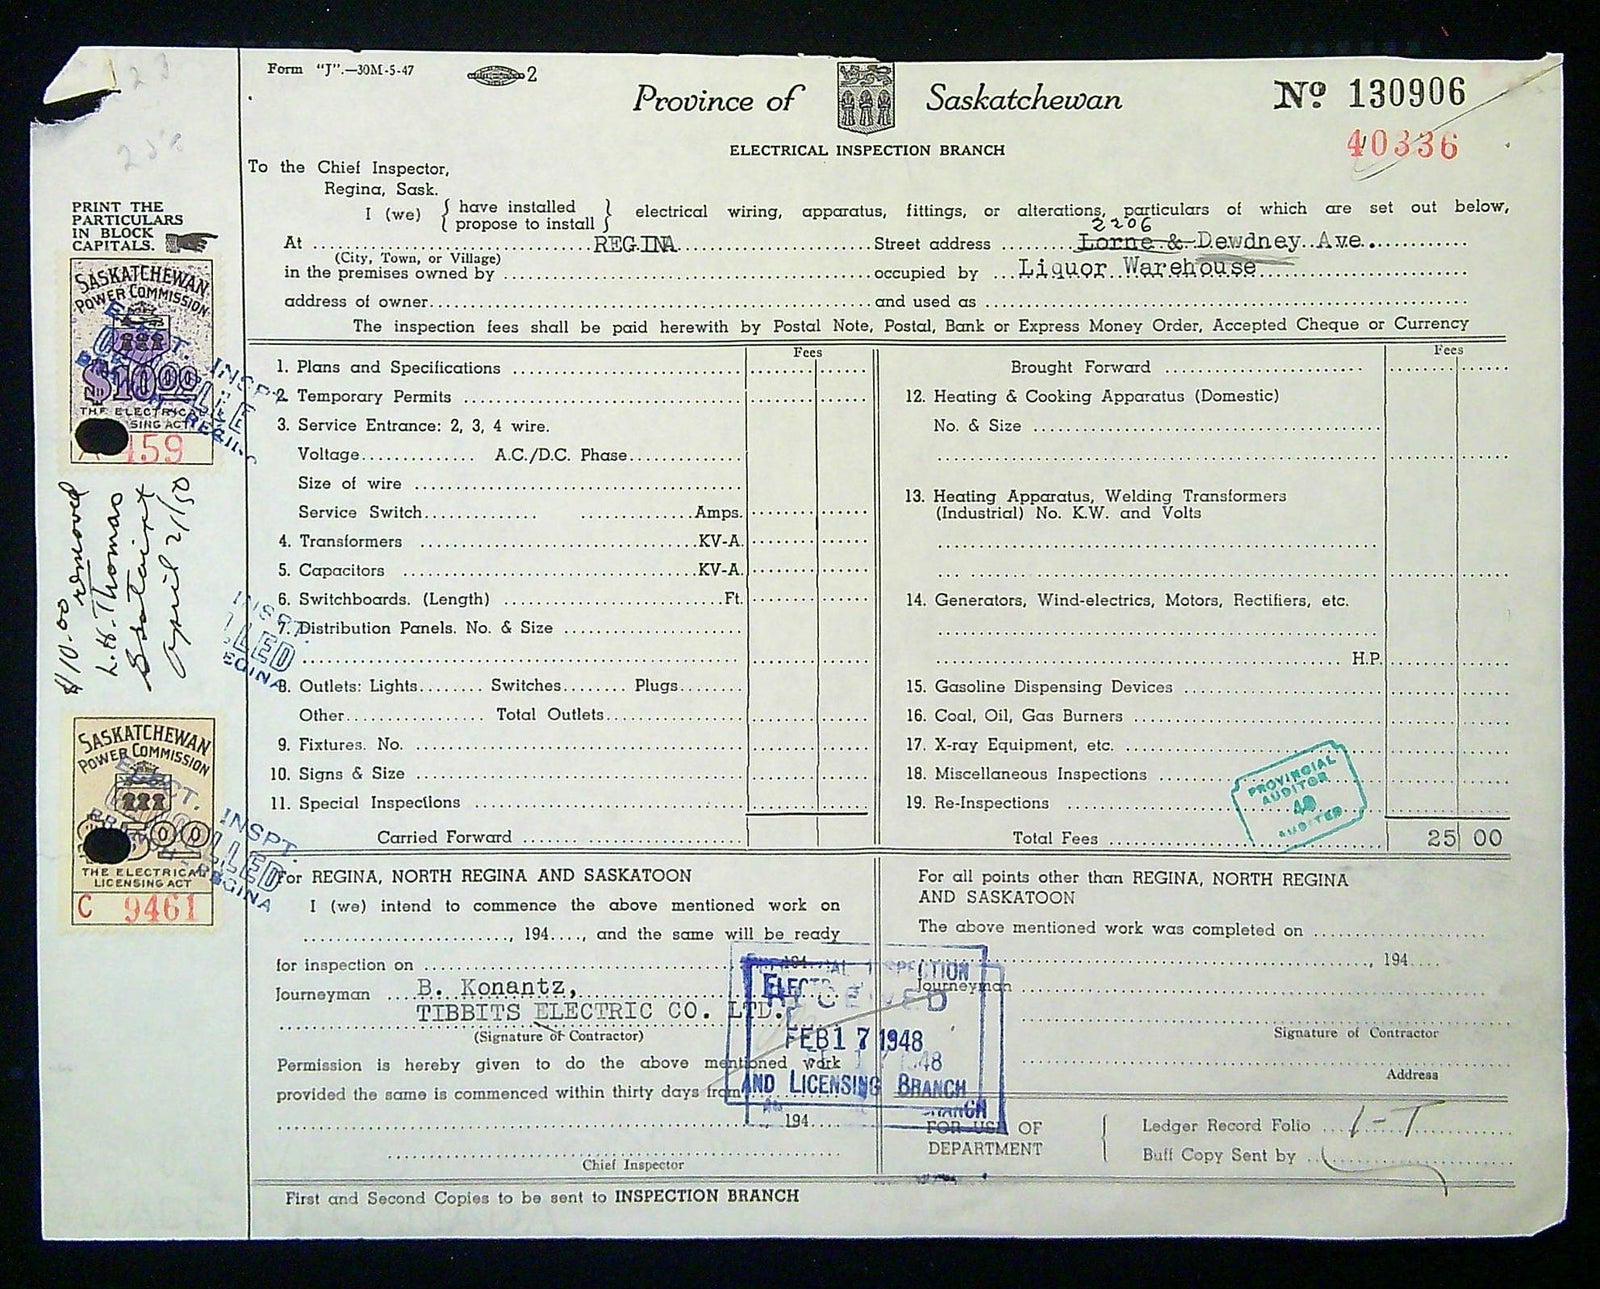 Form "J".—30M-5-47
2
Province of Saskatchewan
Nº 130906
40336
ELECTRICAL INSPECTION BRANCH
To the Chief Inspector,
Regina, Sask.
I (we) { have installed propose to install } electrical wiring, apparatus, fittings, or alterations, particulars of which are set out below,
2206
At REGINA Street address Lorne & Dewdney Ave.
(City, Town, or Village)
in the premises owned by occupied by Liquor Warehouse
address of owner and used as
The inspection fees shall be paid herewith by Postal Note, Postal, Bank or Express Money Order, Accepted Cheque or Currency
PRINT THE
PARTICULARS
IN BLOCK
CAPITALS.
SASKATCHEWAN
POWER COMMISSION
$10.00
THE ELECTRICAL
SING ACT
159
ELECT. INSPT.
BRANCH - REGINA
$10.00 removed
L.H. Thomas
April 21/50
INSPT.
LLED
EGINA
SASKATCHEWAN
POWER COMMISSION
THE ELECTRICAL
LICENSING ACT
C 9461
ELECT. INSPT.
CANCELLED
BRANCH - REGINA
Fees
1. Plans and Specifications
2. Temporary Permits
3. Service Entrance: 2, 3, 4 wire.
Voltage A.C./D.C. Phase
Size of wire
Service Switch Amps.
4. Transformers KV-A.
5. Capacitors KV-A.
6. Switchboards. (Length) Ft.
7. Distribution Panels. No. & Size
8. Outlets: Lights Switches Plugs
Other Total Outlets
9. Fixtures. No.
10. Signs & Size
11. Special Inspections
Carried Forward
Fees
Brought Forward
12. Heating & Cooking Apparatus (Domestic)
No. & Size
13. Heating Apparatus, Welding Transformers
(Industrial) No. K.W. and Volts
14. Generators, Wind-electrics, Motors, Rectifiers, etc.
H.P.
15. Gasoline Dispensing Devices
16. Coal, Oil, Gas Burners
17. X-ray Equipment, etc.
18. Miscellaneous Inspections
19. Re-Inspections
Total Fees 25 00
PROVINCIAL
AUDITOR
40
AUDITED
For REGINA, NORTH REGINA AND SASKATOON
I (we) intend to commence the above mentioned work on
, 194...., and the same will be ready
for inspection on 194
Journeyman B. Konantz,
TIBBITS ELECTRIC CO. LTD.
(Signature of Contractor)
Permission is hereby given to do the above mentioned work
provided the same is commenced within thirty days from
194
Chief Inspector
For all points other than REGINA, NORTH REGINA
AND SASKATOON
The above mentioned work was completed on
, 194
Journeyman
Signature of Contractor
Address
FEB 17 1948
AND LICENSING BRANCH
FOR USE OF
DEPARTMENT
Ledger Record Folio 1-T
Buff Copy Sent by
First and Second Copies to be sent to INSPECTION BRANCH